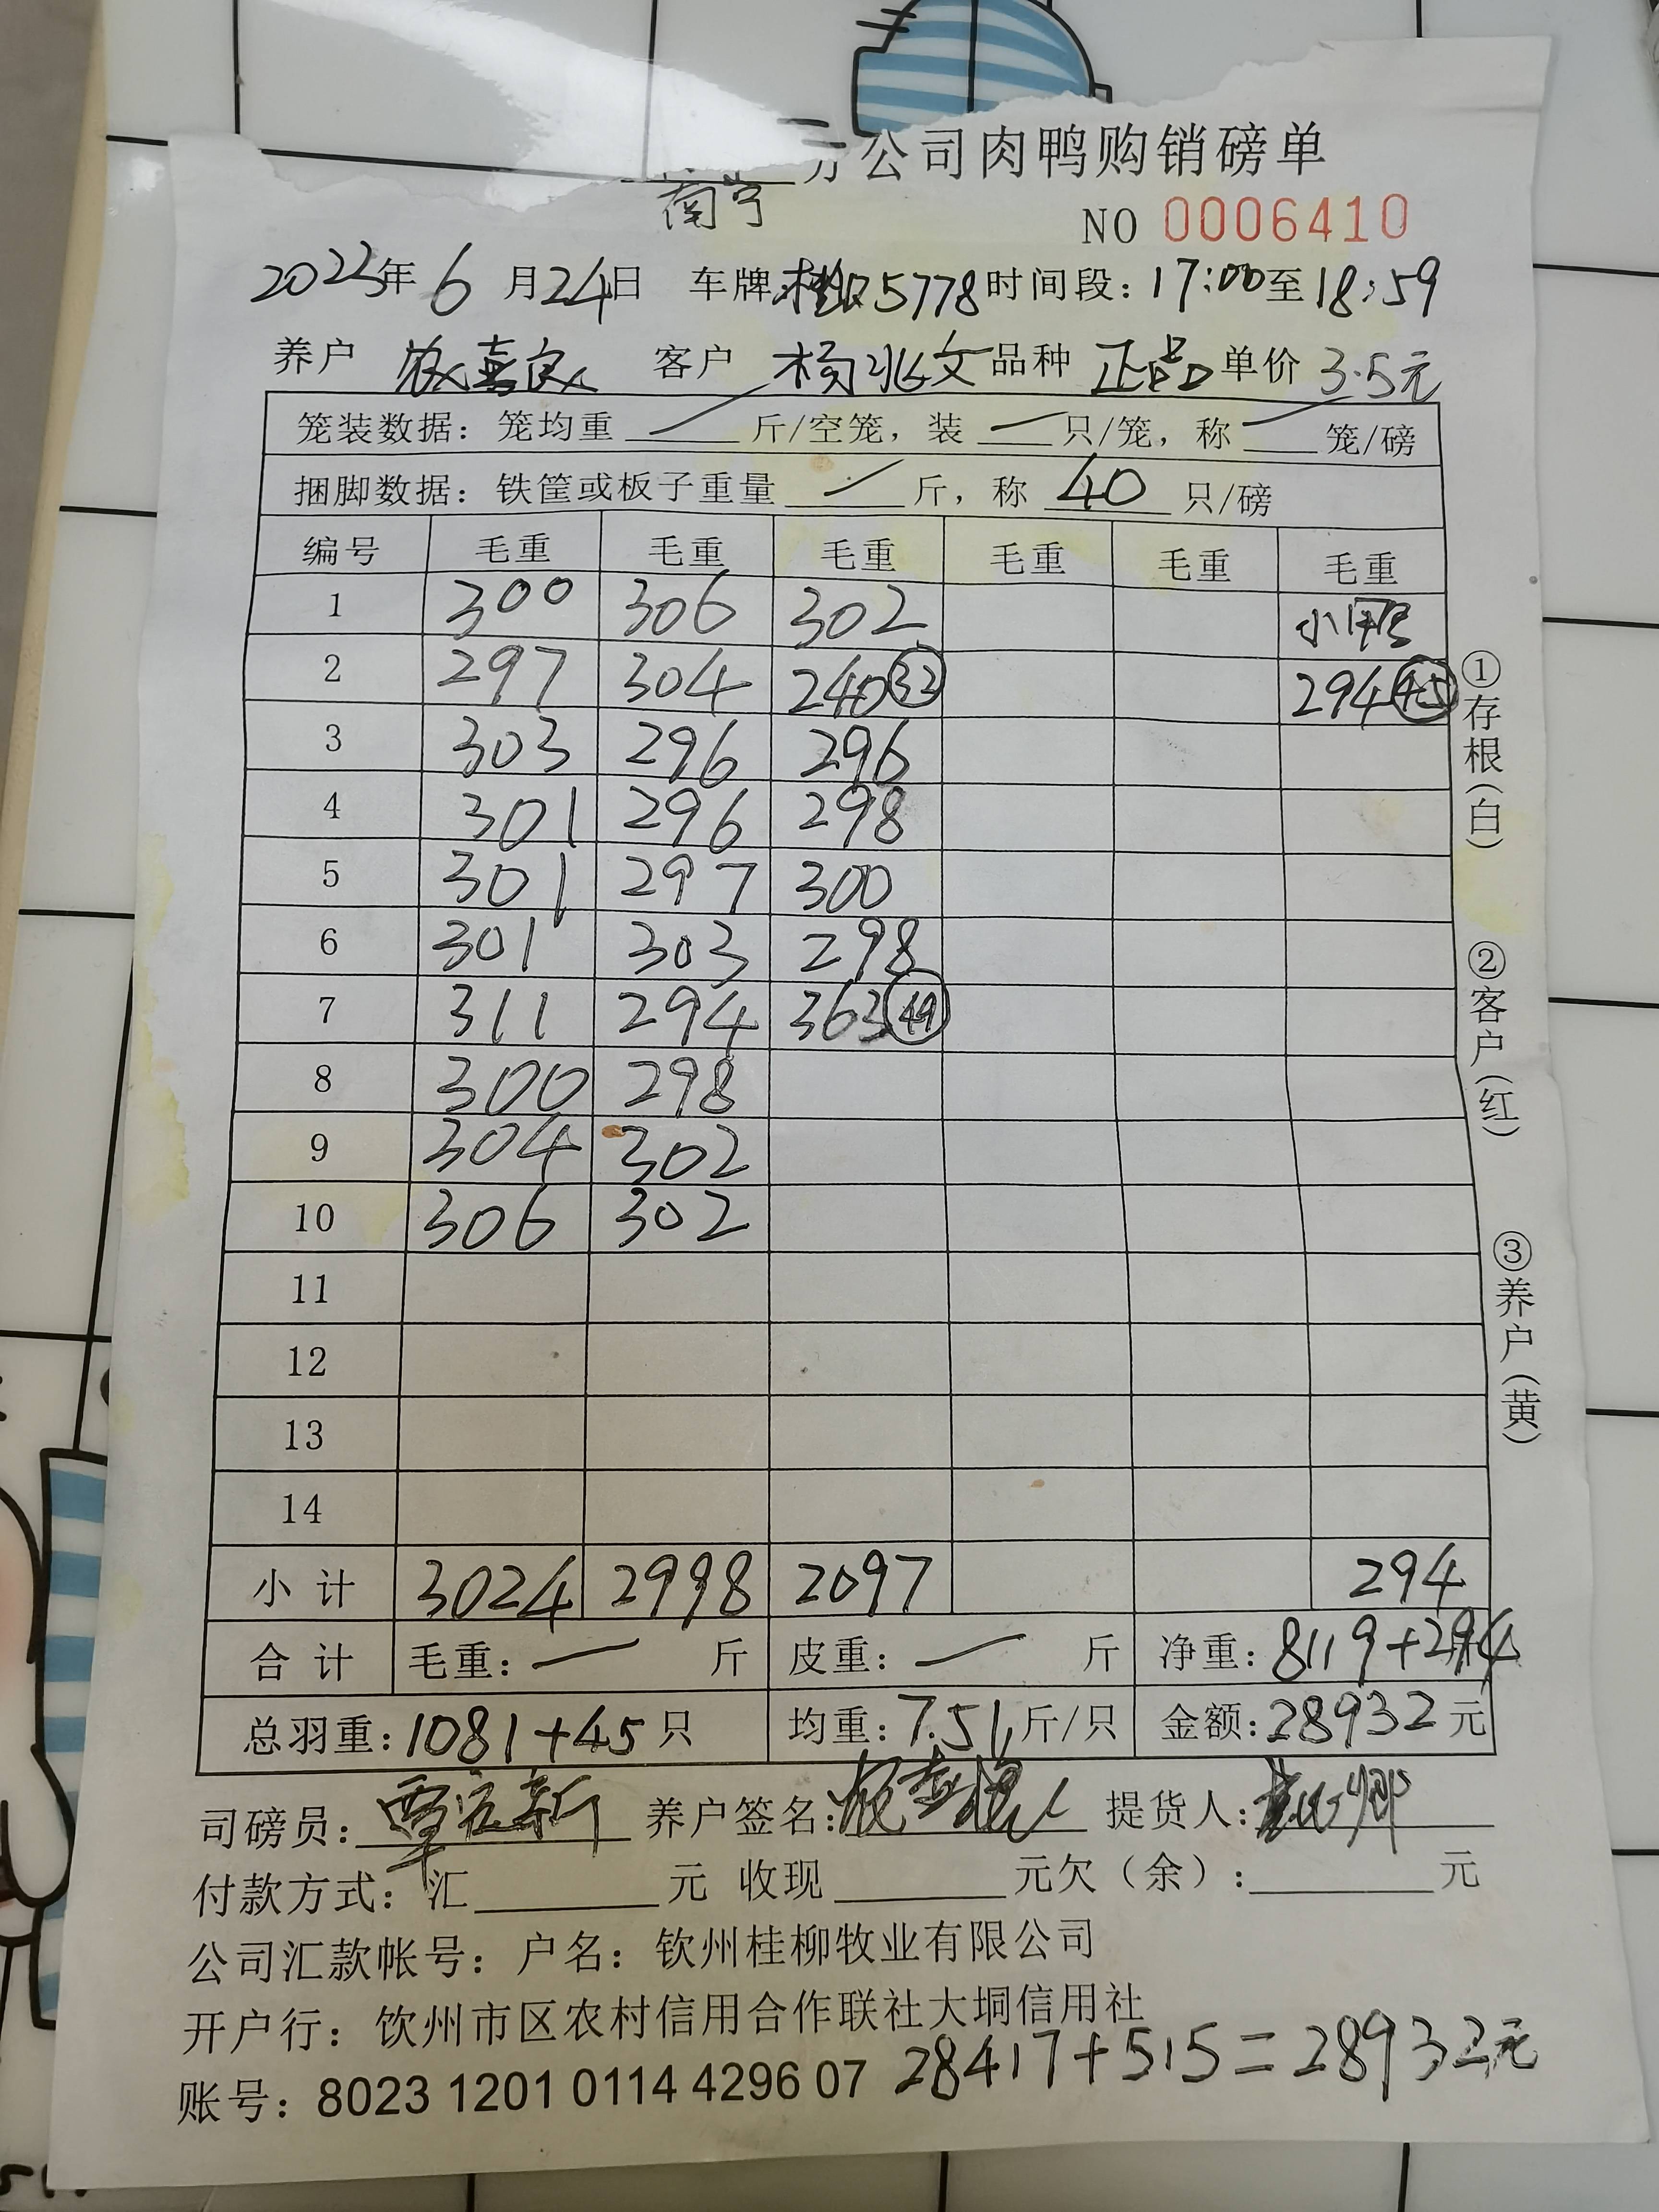 分公司肉鸭购销磅单
南宁
NO 0006410
2023年 6 月 24 日 车牌:桂 5778 时间段: 17:00 至 18:59
养户 农嘉良 客户 杨兆文 品种 正品 单价 3.5元
笼装数据: 笼均重 / 斤/空笼, 装 / 只/笼, 称 / 笼/磅
捆脚数据: 铁筐或板子重量 / 斤, 称 40 只/磅
编号 毛重 毛重 毛重 毛重 毛重 毛重
1 300 306 302 小
2 297 304 240 32 294 45
3 303 296 296
4 301 296 298
5 301 297 300
6 301 303 298
7 311 294 363 49
8 300 298
9 304 302
10 306 302
11
12
13
14
小计 3024 2998 2097 294
合计 毛重: — 斤 皮重: — 斤 净重: 8119+294
总羽重: 1081+45 只 均重: 7.51 斤/只 金额: 28932 元
司磅员: 养户签名: 提货人:
付款方式: 汇 元 收现 元欠(余): 元
公司汇款帐号: 户名: 钦州桂柳牧业有限公司
开户行: 钦州市区农村信用合作联社大垌信用社
账号: 8023 1201 0114 4296 07 28417+515=28932元
①存根(白)
②客户(红)
③养户(黄)